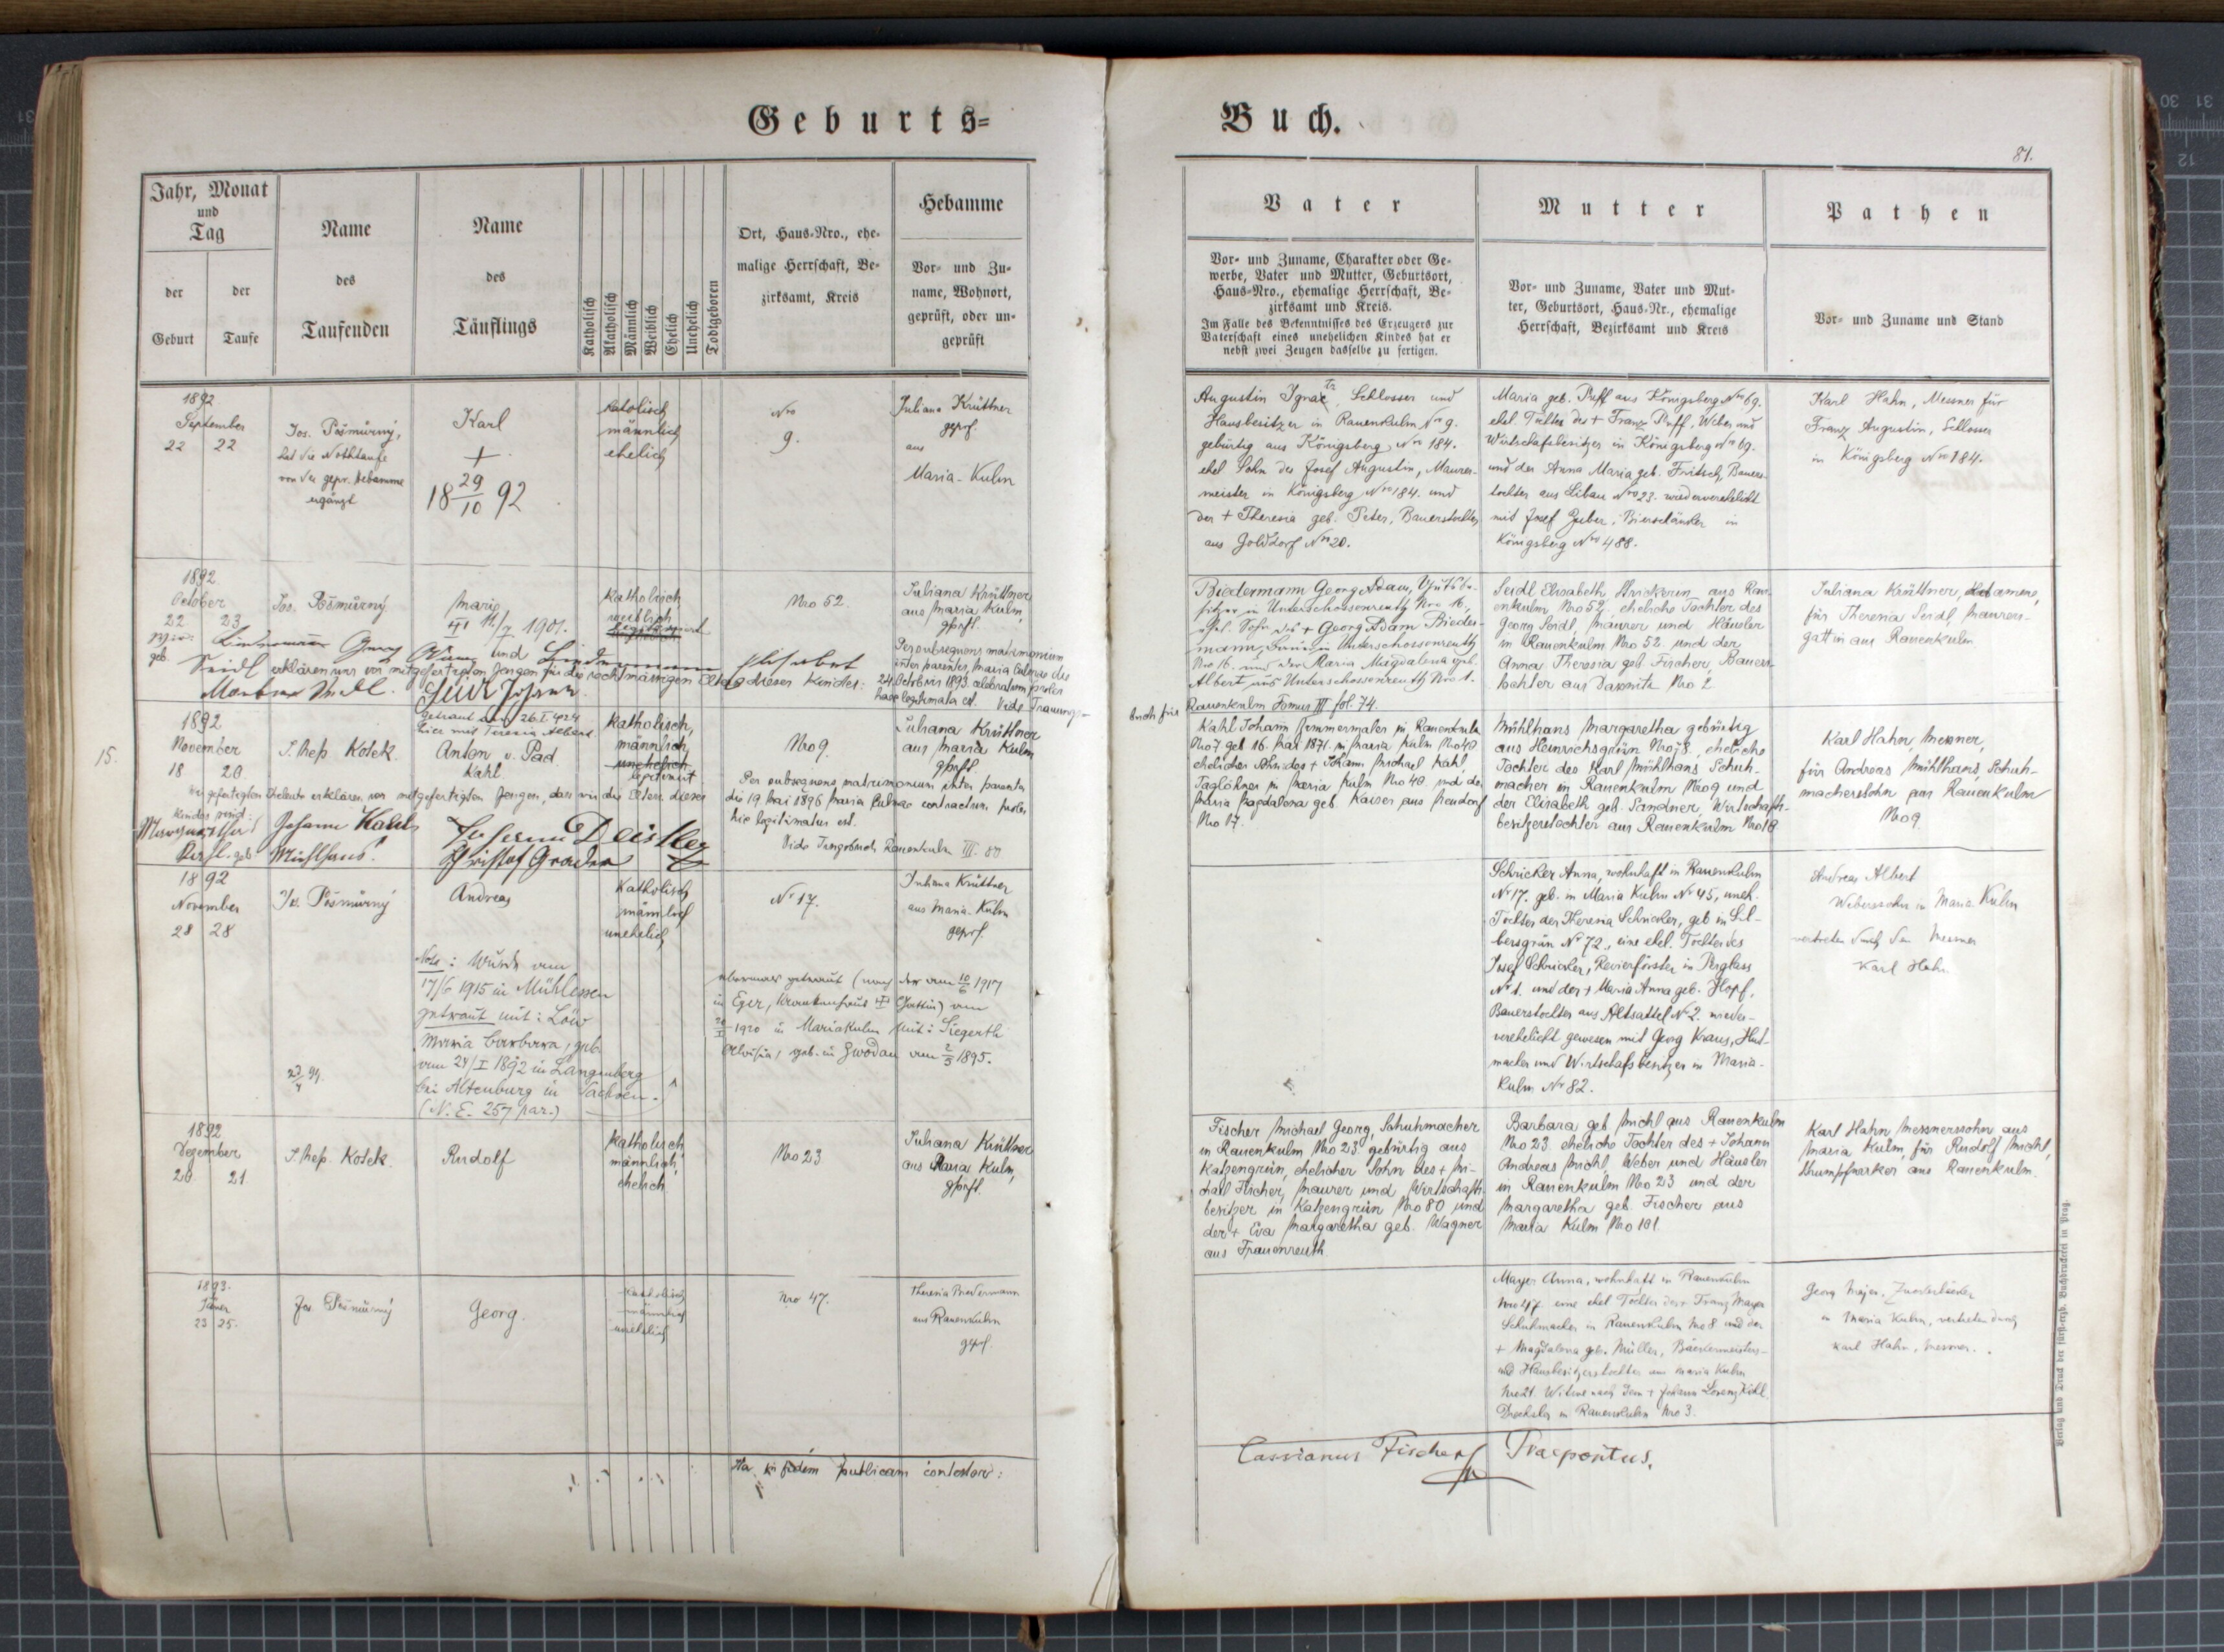 Geburts=
Buch.
81.
Jahr, Monat
und
Tag
der
Geburt
der
Taufe
Name
des
Taufenden
Name
des
Täuflings
Katholisch
Akatholisch
Männlich
Weiblich
Ehelich
Unehelich
Todtgeboren
Ort, Haus-Nro., ehe-
malige Herrschaft, Be-
zirksamt, Kreis
Hebamme
Vor- und Zu-
name, Wohnort,
geprüft, oder un-
geprüft
Vater
Vor- und Zuname, Charakter oder Ge-
werbe, Vater und Mutter, Geburtsort,
Haus-Nro., ehemalige Herrschaft, Be-
zirksamt und Kreis.
Im Falle des Bekenntnisses des Erzeugers zur
Vaterschaft eines unehelichen Kindes hat er
nebst zwei Zeugen dasselbe zu fertigen.
Mutter
Vor- und Zuname, Vater und Mut-
ter, Geburtsort, Haus-Nr., ehemalige
Herrschaft, Bezirksamt und Kreis
Pathen
Vor- und Zuname und Stand
1892
September
22 22
Jos. Pošmůrný,
hat die Nothtaufe
von der gepr. Hebamme
ergänzt
Karl
+
18 29/10 92
katolisch
männlich
ehelich
Nro
9.
Juliana Krüttner
gepr.
aus
Maria-Kulm
Augustin Ignatz, Schlosser und
Hausbesitzer in Rauenkulm Nro 9.
gebürtig aus Königsberg Nro 184.
ehel. Sohn des Josef Augustin, Maurer-
meister in Königsberg Nro 184. und
der + Theresia geb. Peter, Bauerstochter
aus Golddorf Nro 20.
Maria geb. Puff aus Königsberg Nro 69.
ehel. Tochter des + Franz Puff, Weber und
Wirtschaftsbesitzer in Königsberg Nro 69.
und der Anna Maria geb. Fritsch, Bauers-
tochter aus Libau Nro 23. wiederverehelicht
mit Josef Zuber, Bierschänker in
Königsberg Nro 488.
Karl Hahn, Messner für
Franz Augustin, Schlosser
in Königsberg Nro 184.
1892.
October
22 23
Jos. Pošmůrný
Marie
Katholisch,
weiblich
Nro 52.
Juliana Krüttner
aus Maria Kulm,
gprft.
und
Seidl erklären wir vor mitgefertigten Zeugen für die rechtmässigen Eltern dieses Kindes:
Per subsequens matrimonium
inter parentes, Maria Culmae die
24 Octobris 1893. celebratum proles
haec legitimata est. Vide Trauungs-
buch für Rauenkulm Tomus III fol. 74.
Biedermann Georg Adam, Gutsbe-
sitzer in Unterschossenreuth Nro 16,
ehel. Sohn des + Georg Adam Bieder-
mann, Bauer in Unterschossenreuth
Nro 16. und der Maria Magdalena geb.
Albert aus Unterschossenreuth Nro 1.
Seidl Elisabeth Strickerin aus Rau-
enkulm Nro 52, eheliche Tochter des
Georg Seidl, Maurer und Häusler
in Rauenkulm Nro 52. und der
Anna Theresia geb Fischer Bauers-
tochter aus Nro 2.
Juliana Krüttner, Hebamme,
für Theresia Seidl, Maurers-
gattin aus Rauenkulm
15.
1892
November
18 20.
J. Nep. Kotek.
Getraut am 26. I. 1924
hier mit Teresia Albert
Anton v. Pad
Kahl
Katholisch,
männlich,
unehelich
legitimirt
Nro 9.
Juliana Krüttner
aus Maria Kulm
gprft.
erklären vor mitgefertigten Zeugen, dass wir die Eltern dieses
Kindes sind:
Johann Kahl
Kahl geb. Mühlhans.
Per subsequens matrimonium inter parentes
die 19 Mai 1896 Maria Culmae contractum proles
hic legitimatus est.
Vide Trauungsbuch Rauenkulm III. 80
Kahl Johann Zimmermaler in Rauenkulm
Nro 7 geb. 16. Mai 1871. in Maria Kulm Nro 40
ehelicher Sohn des + Johann Michael Kahl,
Taglöhner in Maria Kulm Nro 40 und der
Maria Magdalena geb. Kaiser aus Neudorf
Nro 17.
Mühlhans Margaretha gebürtig
aus Heinrichsgrün Nro 78, eheliche
Tochter des Karl Mühlhans Schuh-
macher in Rauenkulm Nro 9 und
der Elisabeth geb. Sandner, Wirtschafts-
besitzerstochter aus Rauenkulm Nro 18
Karl Hahn, Messner,
für Andreas Mühlhans, Schuh-
macherssohn aus Rauenkulm
Nro 9.
1892
November
28 28
Jos. Pošmůrný
Andreas
Katholisch
männlich
unehelich
Nr 17.
Juliana Krüttner
aus Maria-Kulm
geprf.
Note: Wurde am
17/6 1915 in Mühlessen
getraut mit: Löw
Maria Barbara, geb.
am 24/I 1892 in Langenberg
bei Altenburg in Sachsen.
(N. E. 257 par.)
abermals getraut (nach der am 10/6 1917
in Eger, Krankenhaus + Gattin) am
1920 in Mariakulm mit: Siegerth
Aloisia, geb. in Zwodau am 2/3 1895.
Schricker Anna, wohnhaft in Rauenkulm
Nr 17. geb. in Maria Kulm Nr 45, uneh.
Tochter der Theresia Schricker, geb. in Sil-
bersgrün Nr 72., eine ehel. Tochter des
Josef Schricker, Revierförster in Perglass
Nr 1. und der + Maria Anna geb. Hopf,
Bauerstochter aus Altsattel Nr 2. wieder-
verehelicht gewesen mit Georg Kraus, Hut-
macher und Wirtschaftsbesitzer in Maria-
Kulm Nr 82.
Andreas Albert
Weberssohn in Maria Kulm
vertreten durch den Messner
Karl Hahn.
1892
Dezember
20 21.
J. Nep. Kotek.
Rudolf
Katholisch
männlich,
ehelich
Nro 23
Juliana Krüttner
aus Maria Kulm,
gprft.
Fischer Michael Georg, Schuhmacher
in Rauenkulm Nro 23. gebürtig aus
Katzengrün, ehelicher Sohn des + Mi-
chael Fischer, Maurer und Wirtschafts-
besitzer in Katzengrün Nro 80 und
der + Eva Margaretha geb. Wagner
aus Frauenreuth.
Barbara geb. Michl aus Rauenkulm
Nro 23 eheliche Tochter des + Johann
Andreas Michl, Weber und Häusler
in Rauenkulm Nro 23 und der
Margaretha geb. Fischer aus
Maria Kulm Nro 101.
Karl Hahn Messnerssohn aus
Maria Kulm, für Rudolf Michl,
Strumpfwirker aus Rauenkulm.
1893.
Jäner
23 25.
Jos Pošmůrný
Georg.
Katholisch
männlich
unehelich
Nro 47.
Theresia Biedermann
aus Rauenkulm
gepr.
Mayer Anna, wohnhaft in Rauenkulm
Nro 47 eine ehel. Tochter des + Franz Mayer
Schuhmacher in Rauenkulm Nro 8 und der
+ Magdalena geb. Müller, Bäckermeisters-
und Hausbesitzerstochter aus Maria Kulm
Nro 21. Witwe nach dem + Johann Lorenz Köhl,
Drechsler in Rauenkulm Nro 3.
Georg Majer, Zuckerbäcker
in Maria Kulm, vertreten durch
Karl Hahn, Messner.
Ita in fidem publicam contestor:
Cassianus Fischer Praepositus.
Verlag und Druck der fürst-erzb. Buchdruckerei in Prag.